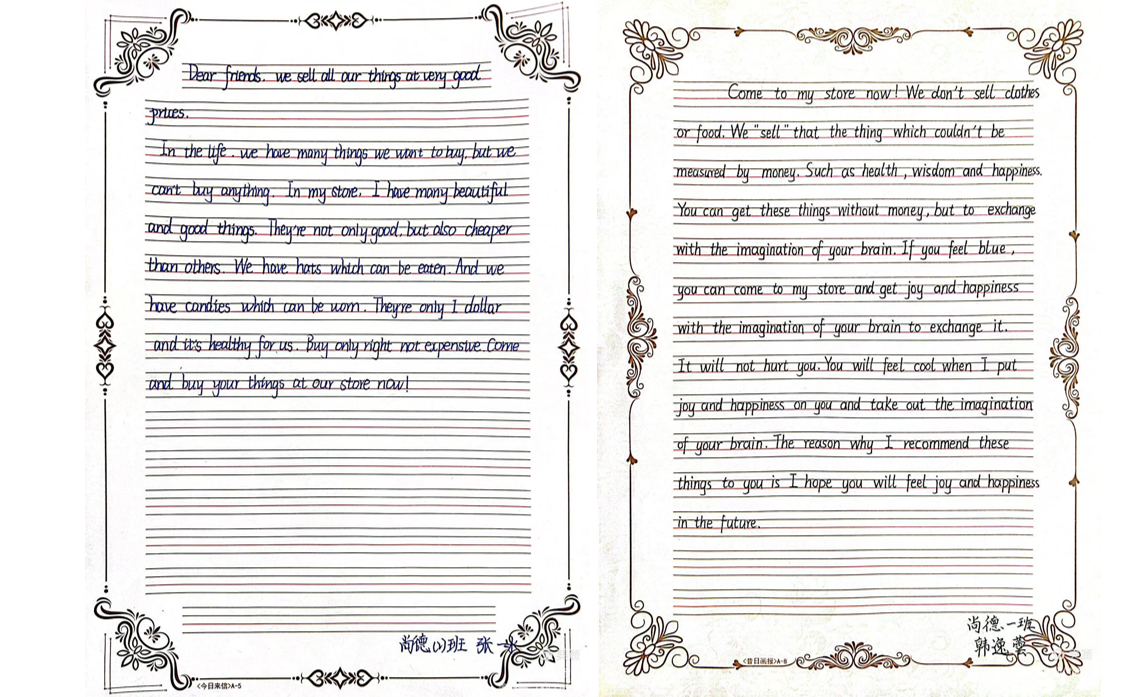 Dear friends. we sell all our things at very good
prices.
In the life. we have many things we want to buy, but we
can't buy anything. In my store. I have many beautiful
and good things. They're not only good, but also cheaper
than others. We have hats which can be eaten. And we
have candies which can be worn. They're only 1 dollar
and it's healthy for us. Buy only right not expensive. Come
and buy your things at our store now!
尚德(1)班 张一
《今日来信》A-5
Come to my store now! We don't sell clothes
or food. We "sell" that the thing which couldn't be
measured by money. Such as health, wisdom and happiness.
You can get these things without money, but to exchange
with the imagination of your brain. If you feel blue,
you can come to my store and get joy and happiness
with the imagination of your brain to exchange it.
It will not hurt you. You will feel cool when I put
joy and happiness on you and take out the imagination
of your brain. The reason why I recommend these
things to you is I hope you will feel joy and happiness
in the future.
尚德一班
韩逸
《昔日画报》A-8